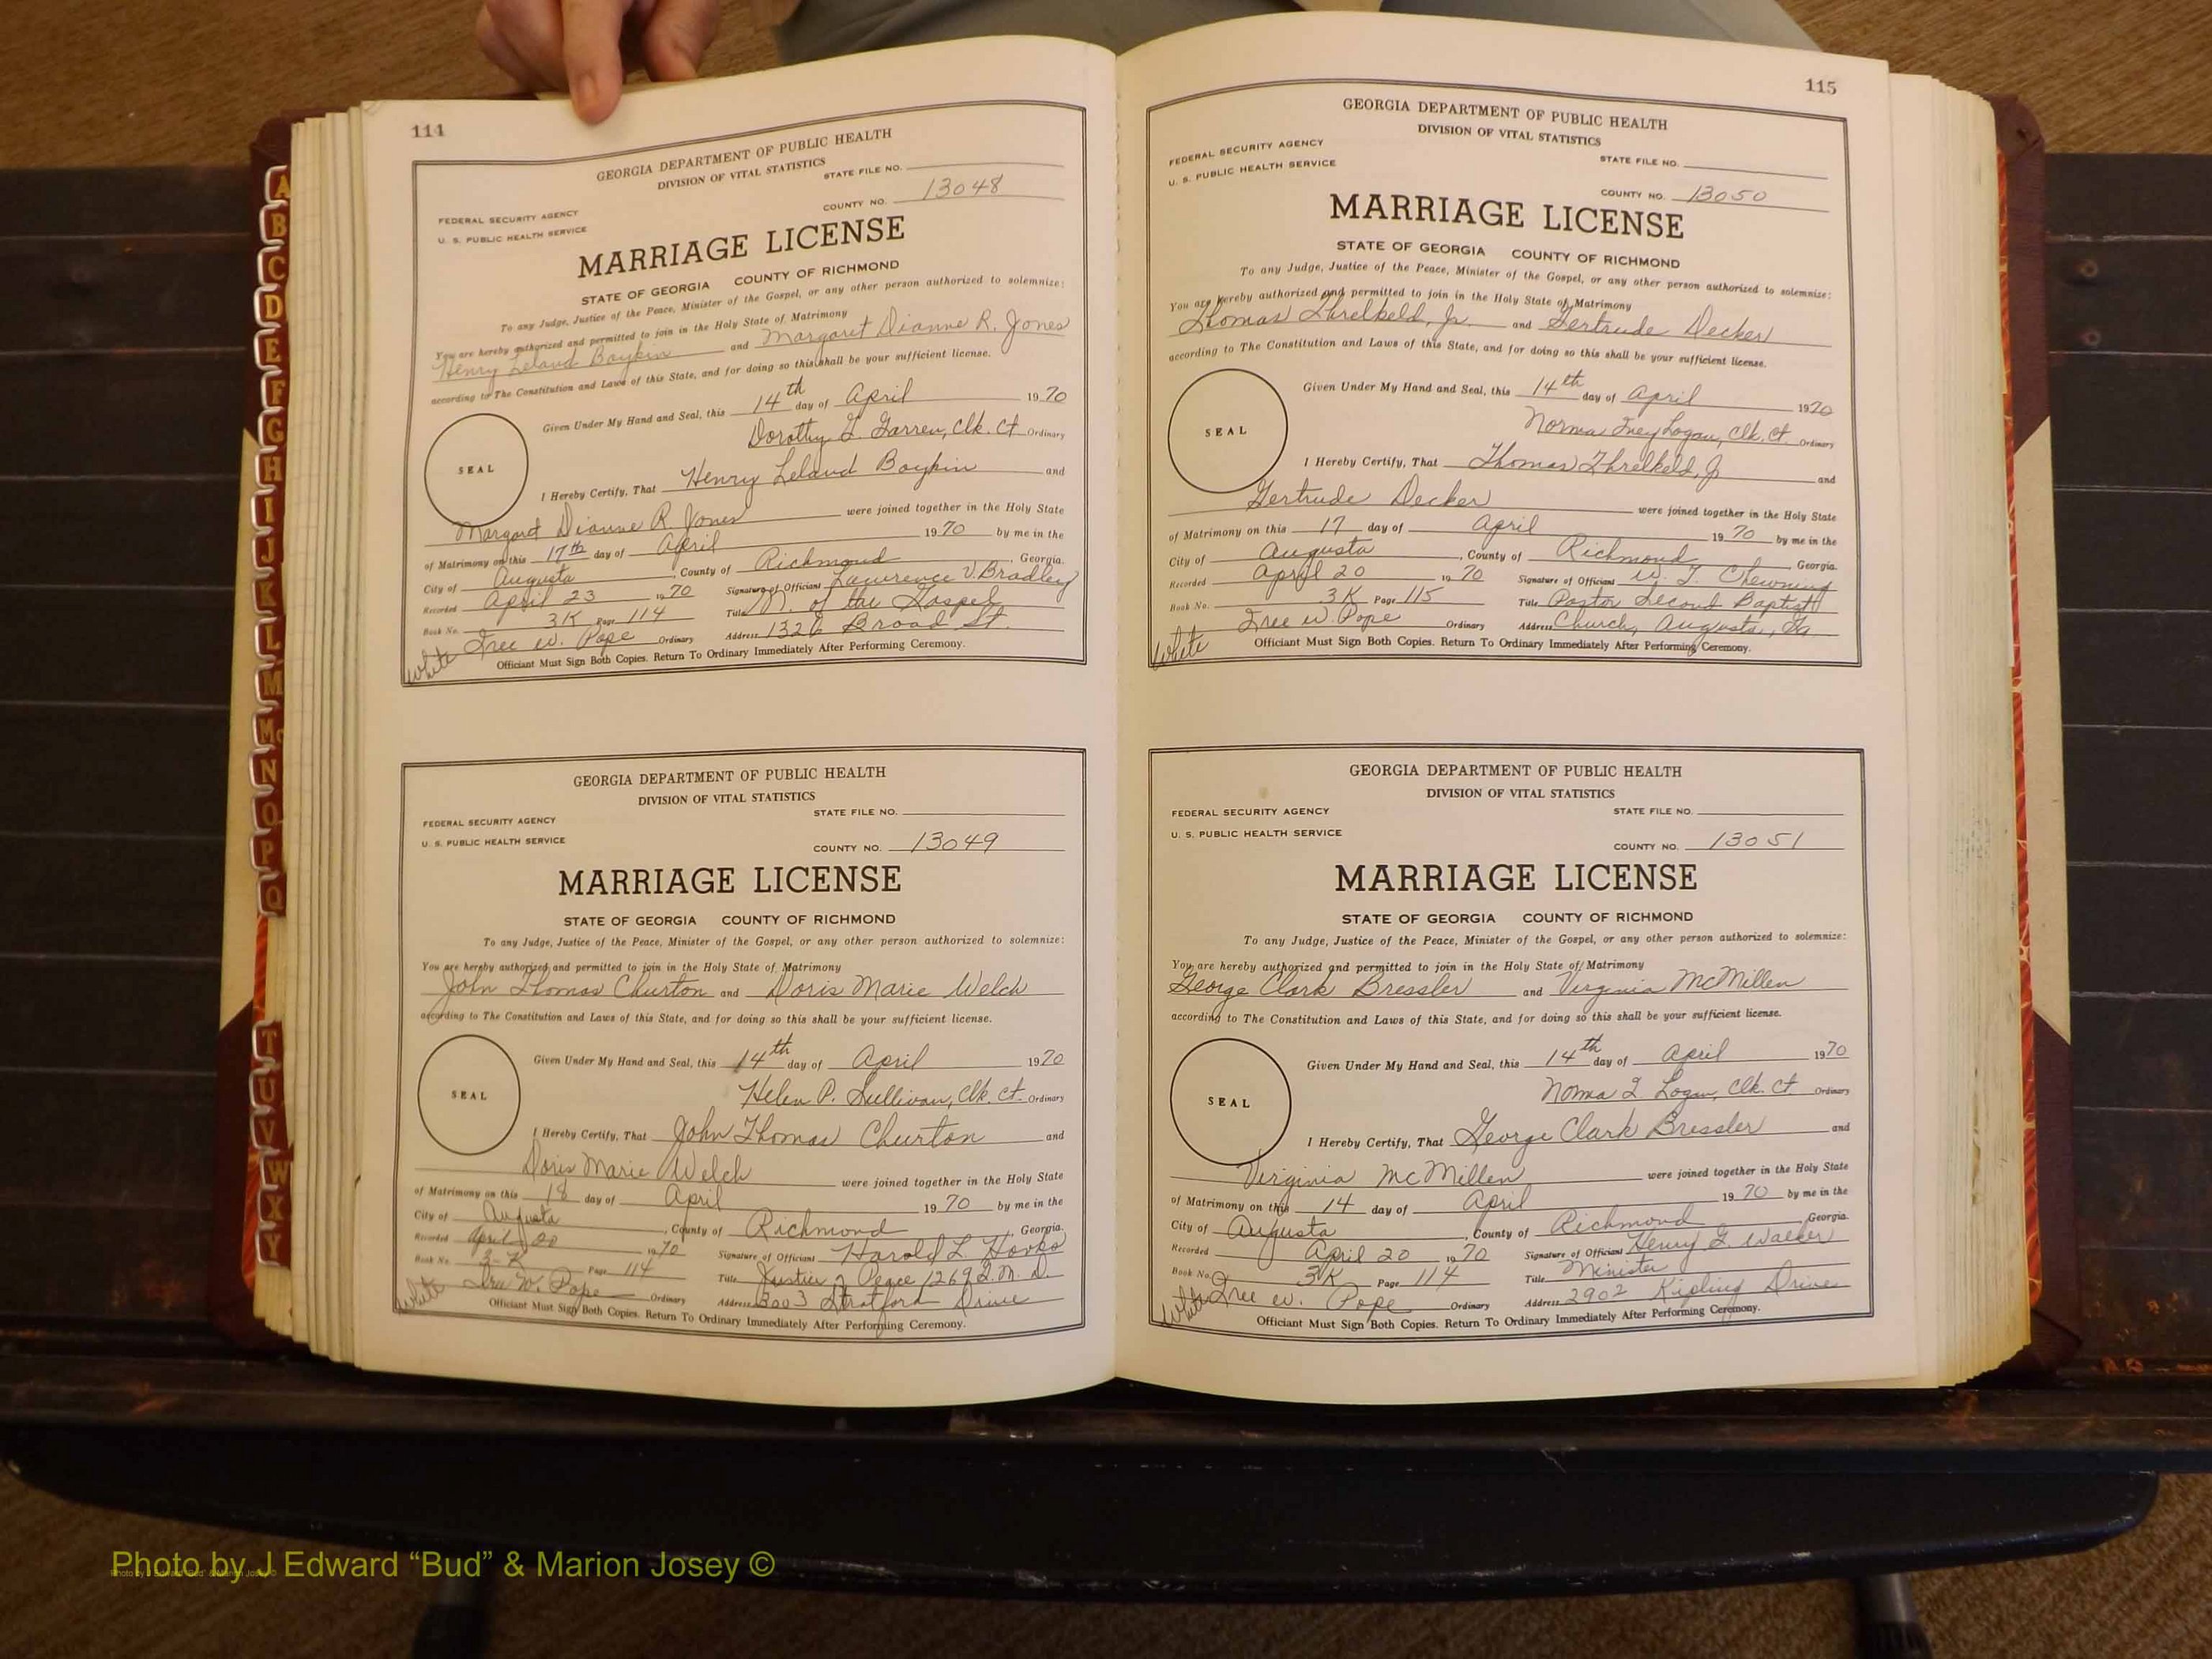 114
GEORGIA DEPARTMENT OF PUBLIC HEALTH
DIVISION OF VITAL STATISTICS
STATE FILE NO.
COUNTY NO. 13048
FEDERAL SECURITY AGENCY
U. S. PUBLIC HEALTH SERVICE
MARRIAGE LICENSE
STATE OF GEORGIA COUNTY OF RICHMOND
To any Judge, Justice of the Peace, Minister of the Gospel, or any other person authorized to solemnize:
You are hereby authorized and permitted to join in the Holy State of Matrimony
Henry Leland Boykin and Margaret Dianne R. Jones
according to The Constitution and Laws of this State, and for doing so this shall be your sufficient license.
Given Under My Hand and Seal, this 14th day of April 1970
Dorothy Garren, Clk. Ct. Ordinary
SEAL
I Hereby Certify, That Henry Leland Boykin and
Margaret Dianne R. Jones were joined together in the Holy State
of Matrimony on this 17th day of April 1970 by me in the
City of Augusta, County of Richmond, Georgia.
Recorded April 23 1970 Signature of Officiant Lawrence V. Bradley
Book No. 3K Page 114 Title M. of the Gospel
Tree W. Pope Ordinary Address 1326 Broad St.
White
Officiant Must Sign Both Copies. Return To Ordinary Immediately After Performing Ceremony.
GEORGIA DEPARTMENT OF PUBLIC HEALTH
DIVISION OF VITAL STATISTICS
STATE FILE NO.
FEDERAL SECURITY AGENCY
U. S. PUBLIC HEALTH SERVICE
COUNTY NO. 13049
MARRIAGE LICENSE
STATE OF GEORGIA COUNTY OF RICHMOND
To any Judge, Justice of the Peace, Minister of the Gospel, or any other person authorized to solemnize:
You are hereby authorized and permitted to join in the Holy State of Matrimony
John Thomas Churton and Doris Marie Welch
according to The Constitution and Laws of this State, and for doing so this shall be your sufficient license.
Given Under My Hand and Seal, this 14th day of April 1970
Helen P. Sullivan, Clk. Ct. Ordinary
SEAL
I Hereby Certify, That John Thomas Churton and
Doris Marie Welch were joined together in the Holy State
of Matrimony on this 18 day of April 1970 by me in the
City of Augusta, County of Richmond, Georgia.
Recorded April 20 1970 Signature of Officiant Harold L.
Book No. 3-K Page 114 Title Justice of Peace 1269 G.M.D.
W. Pope Ordinary Address 3003 Stratford Drive
White
Officiant Must Sign Both Copies. Return To Ordinary Immediately After Performing Ceremony.
115
GEORGIA DEPARTMENT OF PUBLIC HEALTH
DIVISION OF VITAL STATISTICS
FEDERAL SECURITY AGENCY
U. S. PUBLIC HEALTH SERVICE
STATE FILE NO.
COUNTY NO. 13050
MARRIAGE LICENSE
STATE OF GEORGIA COUNTY OF RICHMOND
To any Judge, Justice of the Peace, Minister of the Gospel, or any other person authorized to solemnize:
You are hereby authorized and permitted to join in the Holy State of Matrimony
Thomas Threlkeld, Jr. and Gertrude Decker
according to The Constitution and Laws of this State, and for doing so this shall be your sufficient license.
Given Under My Hand and Seal, this 14th day of April 1970
Norma Ivey Logan, Clk. Ct. Ordinary
SEAL
I Hereby Certify, That Thomas Threlkeld, Jr and
Gertrude Decker were joined together in the Holy State
of Matrimony on this 17 day of April 1970 by me in the
City of Augusta, County of Richmond, Georgia.
Recorded April 20 1970 Signature of Officiant W. T. Chewning
Book No. 3K Page 115 Title Pastor Second Baptist
Tree W. Pope Ordinary Address Church, Augusta, Ga
White
Officiant Must Sign Both Copies. Return To Ordinary Immediately After Performing Ceremony.
GEORGIA DEPARTMENT OF PUBLIC HEALTH
DIVISION OF VITAL STATISTICS
FEDERAL SECURITY AGENCY
U. S. PUBLIC HEALTH SERVICE
STATE FILE NO.
COUNTY NO. 13051
MARRIAGE LICENSE
STATE OF GEORGIA COUNTY OF RICHMOND
To any Judge, Justice of the Peace, Minister of the Gospel, or any other person authorized to solemnize:
You are hereby authorized and permitted to join in the Holy State of Matrimony
George Clark Bressler and Virginia McMillen
according to The Constitution and Laws of this State, and for doing so this shall be your sufficient license.
Given Under My Hand and Seal, this 14th day of April 1970
Norma I. Logan, Clk. Ct. Ordinary
SEAL
I Hereby Certify, That George Clark Bressler and
Virginia McMillen were joined together in the Holy State
of Matrimony on this 14 day of April 1970 by me in the
City of Augusta, County of Richmond, Georgia.
Recorded April 20 1970 Signature of Officiant Henry G. Walker
Book No. 3K Page 114 Title Minister
Tree W. Pope Ordinary Address 2902 Kipling Drive
White
Officiant Must Sign Both Copies. Return To Ordinary Immediately After Performing Ceremony.
A
B
C
D
E
F
G
H
I
J
K
L
M
Mc
N
O
P
Q
T
U
V
W
X
Y
Photo by J Edward “Bud” & Marion Josey ©
Photo by J Edward “Bud” & Marion Josey ©